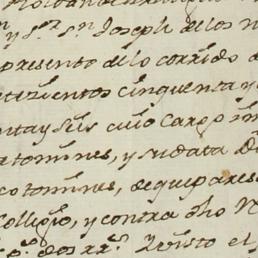 y S.r S.n Joseph de los
presento de lo corrido
trezientos cinquenta y
ta y seis cuio cargo im
tomines, y su data
co tomines, de que parese
Collegio, y contra dho N
p.o dos rr.s Visto el